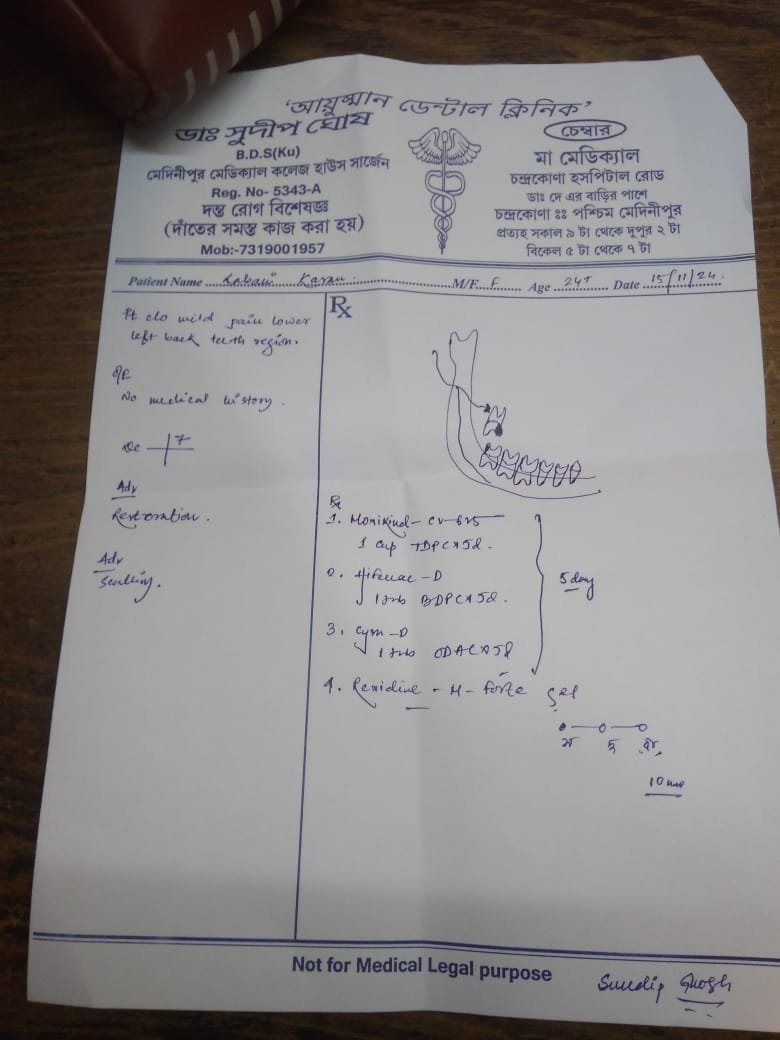 'আয়ুষ্মান ডেন্টাল ক্লিনিক'
ডাঃ সুদীপ ঘোষ
B.D.S(Ku)
মেদিনীপুর মেডিক্যাল কলেজ হাউস সার্জেন
Reg. No- 5343-A
দন্ত রোগ বিশেষজ্ঞ
(দাঁতের সমস্ত কাজ করা হয়)
Mob:-7319001957
চেম্বার
মা মেডিক্যাল
চন্দ্রকোণা হসপিটাল রোড
ডাঃ দে এর বাড়ির পাশে
চন্দ্রকোণা ঃঃ পশ্চিম মেদিনীপুর
প্রত্যহ সকাল ৯ টা থেকে দুপুর ২ টা
বিকেল ৫ টা থেকে ৭ টা
Patient Name M/F. F Age 24+ Date 15/11/24.
Pt c/o mild pain lower
left back teeth region.
O/E
No medical history.
7
Adv
Restoration.
Adv
Rx
Rx
1. Monikind-CV-625
1 cap TDPC x 5d.
2. -D
1 tab BDPC x 5d.
3. -D
1 tab ODAC x 5d
5 day
4. Rexidine-M-forte gel
স দু রা
10
Not for Medical Legal purpose
Suudip Ghosh